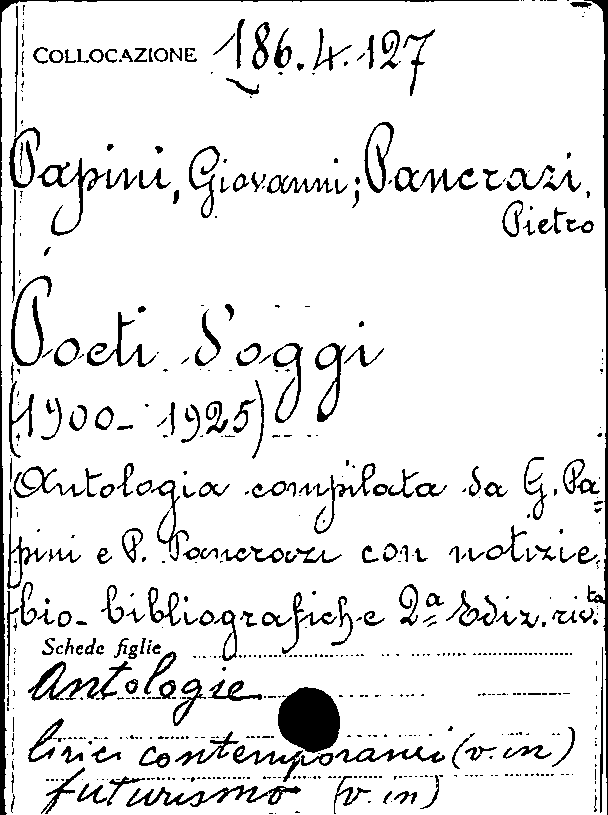 COLLOCAZIONE 186.4.127
Papini, Giovanni; Pancrazi,
Pietro
Poeti d'oggi
(1900- 1925)
Antologia compilata da G. Pa=
pini e P. Pancrazi con notizie
bio-bibliografiche 2ª Ediz. riv.ta
Schede figlie
Antologie
lirici contemporanei (v. in)
futurismo (v. in)